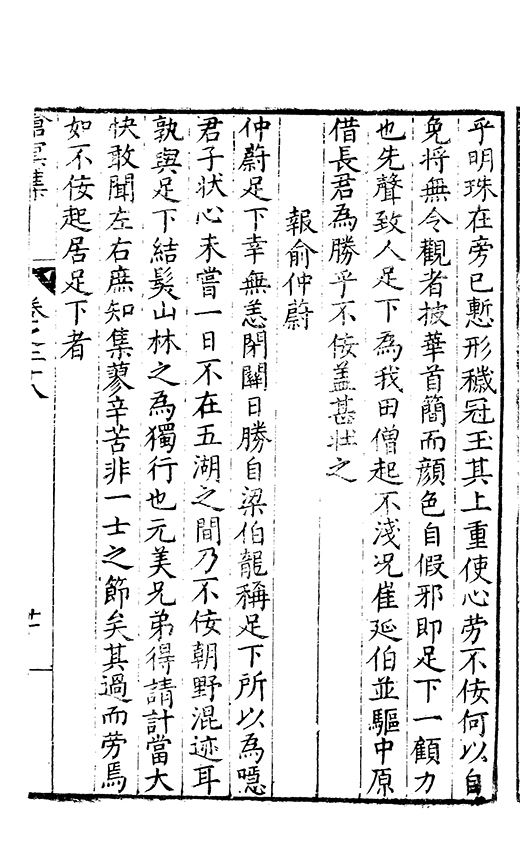 乎明珠在旁已慙形穢冠玉其上重使心勞不佞何以自
免將無令觀者披華首簡而顔色自假邪即足下一顧力
也先聲致人足下為我田僧起不淺况崔延伯並驅中原
借長君為勝乎不佞盖甚壯之
報俞仲蔚
仲蔚足下幸無恙閉關日勝自梁伯龍稱足下所以為噁
君子狀心未嘗一日不在五湖之間乃不佞朝野混迹耳
孰與足下結髮山林之為獨行也元美兄弟得請計當大
快敢聞左右庶知集蓼辛苦非一士之節矣其過而勞焉
如不佞起居足下者
滄溟集
卷之二十八
廿一